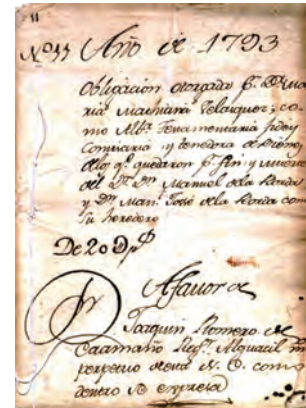 11
Nº 11 Año de 1793
Obligacion otorgada p. Dª Ma
ria Machuna Velasquez; co
mo Albª Testamentaria fidey
comisaria y tenedora de Bienes,
dlos qº quedaron p. fin y muerte
del Dr. Dn. Manuel dela Rocha
y Dn. Man. José dela Rocha como
su heredero
De 20 Dps
A favor de
Joaquin Romero de
Caamaño Regr. Alguacil m
perpetuo desta N. C. como
dentro se expresa